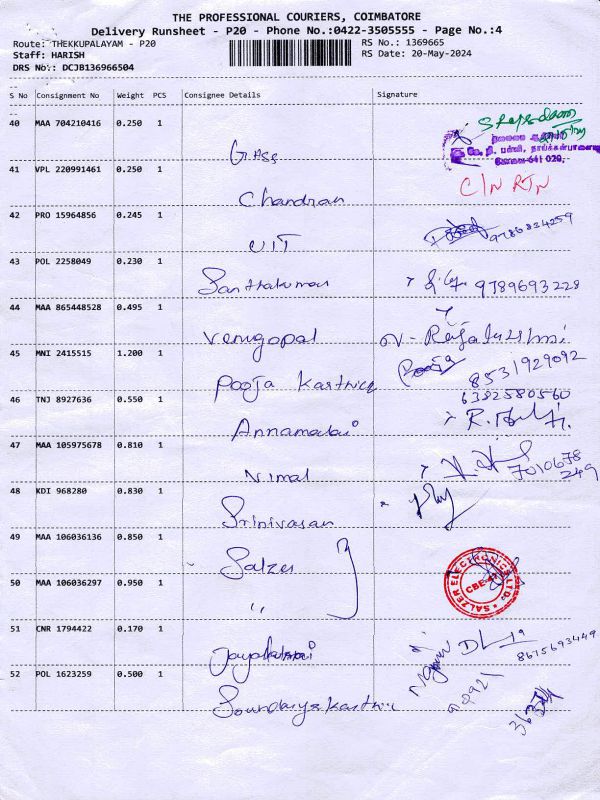 THE PROFESSIONAL COURIERS, COIMBATORE
Delivery Runsheet - P20 - Phone No.:0422-3505555 - Page No.:4
Route: THEKKUPALAYAM - P20
RS No.: 1369665
Staff: HARISH
RS Date: 20-May-2024
DRS No: DCJB136966504
S No Consignment No Weight PCS Consignee Details Signature
40 MAA 704210416 0.250 1
தலைமை
கோவை-641 020.
41 VPL 220991461 0.250 1
C/N RTN
Chandran
42 PRO 15964856 0.245 1
9786824259
UIT
43 POL 2258049 0.230 1
Santhakumar 9789693228
44 MAA 865448528 0.495 1
Venugopal
45 MNI 2415515 1.200 1
Pooja
8531929092
Pooja Karthick
6382580560
46 TNJ 8927636 0.550 1
Annamalai
47 MAA 105975678 0.810 1
Vimal
7010678
249
48 KDI 968280 0.830 1
Srinivasan
49 MAA 106036136 0.850 1
Salzer
SALZER ELECTRONICS LTD.
50 MAA 106036297 0.950 1
"
51 CNR 1794422 0.170 1
8675693449
52 POL 1623259 0.500 1
Soundarya Karthic